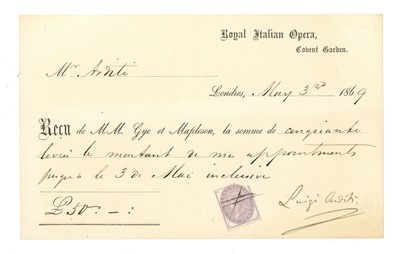 Royal Italian Opera,
Covent Garden.
Mr Arditi
Londres, May 3rd 1869
Reçu de M.M. Gye et Mapleson, la somme de cinquante
livres le montant de mes appointments
jusqu'a le 3 de Mai inclusive
£50: –:
Luigi Arditi